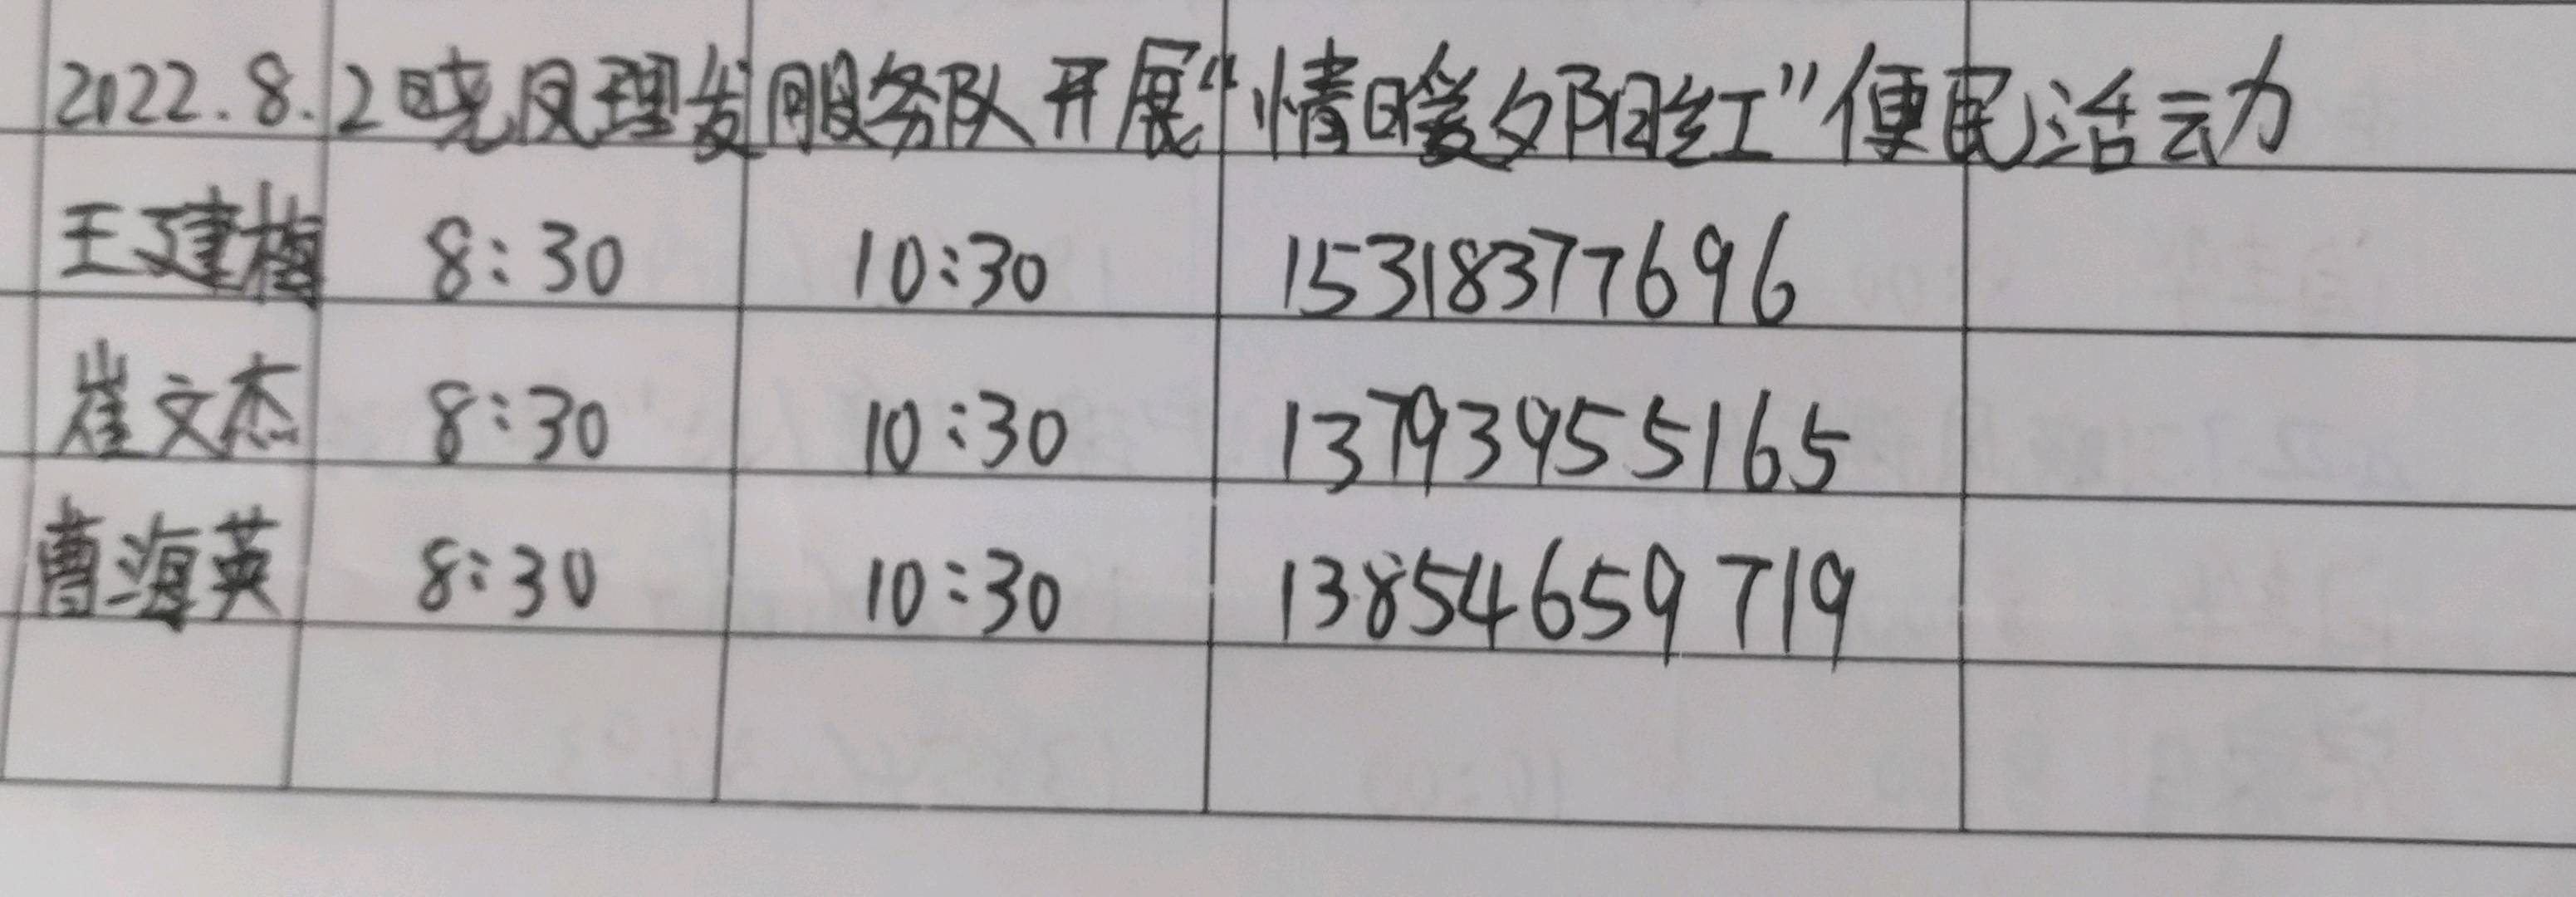 2022.8.2晓凤理发服务队开展“情暖夕阳红”便民活动
王建梅 8:30 10:30 15318377696
崔文杰 8:30 10:30 13793955165
曹海英 8:30 10:30 13854659719